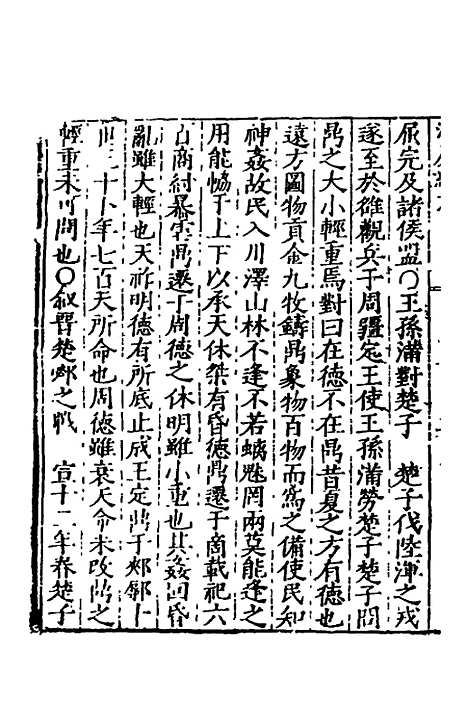 屈完及諸侯盟〇王孫滿對楚子　楚子伐陸渾之戎
遂至於雒觀兵于周疆定王使王孫滿勞楚子楚子問
鼎之大小輕重焉對曰在德不在鼎昔夏之方有德也
遠方圖物貢金九牧鑄鼎象物百物而爲之備使民知
神姦故民入川澤山林不逢不若螭魅罔兩莫能逢之
用能恊于上下以承天休桀有昏德鼎遷于商載祀六
百商紂暴虐鼎遷于周德之休明雖小重也其姦回昏
亂雖大輕也天祚明德有所底止成王定鼎于郟鄏卜
世三十卜年七百天所命也周德雖衰天命未改鼎之
輕重未可問也〇叙晉楚邲之戰　宣十二年春楚子